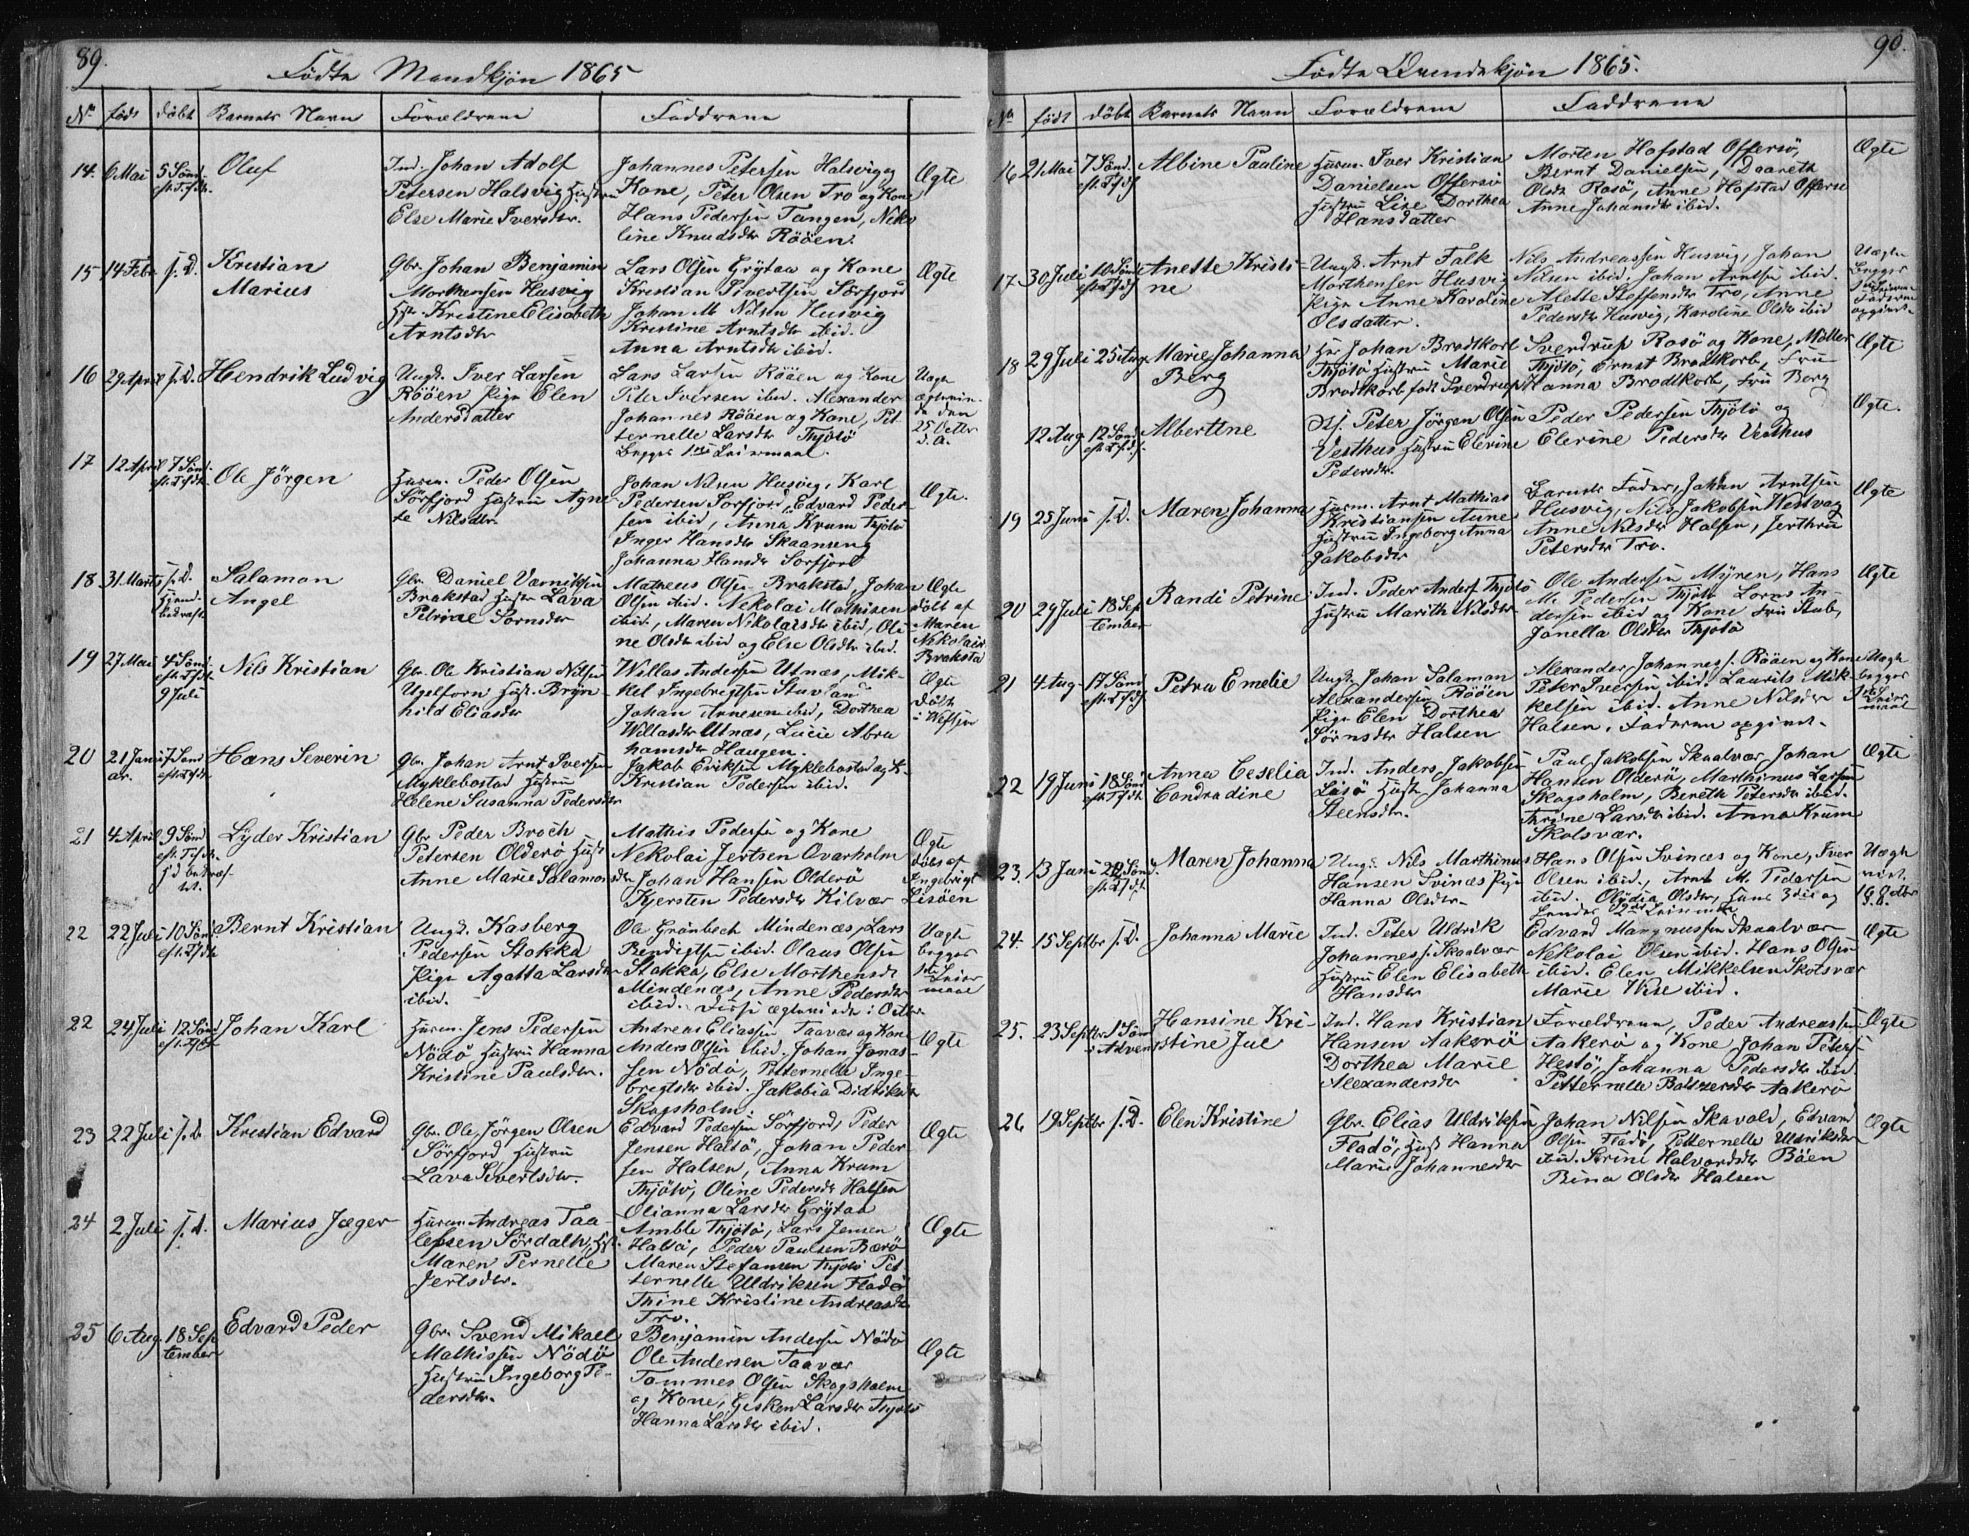 89.
Födte Mandkjön 1865
No födt döbt Barnets Navn Forældrene Faddrene
14. 6 Mai 5 Sönd. eft. Trfdt. Oluf
Ind. Johan Adolf
Petersen Halsvig Hustru
Else Marie Iversdtr.
Johannes Petersen Halsvig og
Kone, Peter Olsen Tro og Kone
Hans Pedersen Tangen, Niko
line Knudsdtr Rööen.
Ægte
15 14 Febr. s. D. Kristian
Marius
Gbr. Johan Benjamin
Morthensen Husvig
Hst. Kristine Elisabeth
Arntsdtr
Lars Olsen Grytaa og Kone
Kristian Sivertsen Sörfjord
Johan M. Nilsen Husvig
Kristine Arntsdtr ibid.
Anna Arntsdtr ibid.
Ægte
16 29 April s. D. Hendrik Ludvig
Ungk. Iver Larsen
Rööen Pige Elen
Andersdatter
Lars Larsen Rööen og Kone
Peter Iversen ibid. Alexander
Johannes Rööen og Kone, Pet
ternelle Larsdtr Thjötö
begges 1ste Leiermaal.
Uægte
25 Octbr
17 12 April 7 Sönd. eft. Trfdt. Ole Jörgen
Husm. Peder Olsen
Sörfjord Hustru Agne
te Nilsdtr.
Johan Nilsen Husvig, Karl
Pedersen Sörfjord, Edvard Peder
sen ibid, Anna Krum Thjötö
Inger Hansdtr Skaanseng
Johanna Hansdtr Sörfjord
Ægte.
18 31. Marts s. D. Salamon
Angel
Gbr. Daniel
Brakstad Hustr Lava
Petrine Sörnsdtr
Matheus Olsen Brakstad, Johan
Olsen ibid. Nekolai Mathisen
ibid., Maren Nikolaisdtr ibid, Oli
ne Olsdtr ibid og Else Olsdtr ibid.
Ægte
döbt af
Maren
Nikolaisd
Braksta
19 27 Mai 4 Sönd. eft. Trfdt. 9 Juli Nils Kristian
Gbr. Ole Kristian Nilsen
Hust. Bryn-
hild Eliasdtr
Willas Andersen Utnæs, Mik-
kel Ingebrigtsen
Johan Arnesen ibid, Dorthea
Willasdtr Utnæs, Lucie Abra
hamsdtr Haugen.
Ægte
Födt
i Vefsen
20 21 Janu
ar. 7 Sönd eft. Trfdt. Hans Severin
Gbr. Johan Arnt Iversen
Myklebostad Hustru
Helene Susanna Pedersdtr
Jakob Eriksen Myklebostad og K.
Kristian Pedersen ibid.
21 4 April 9 Sönd eft. Trfdt. Lyder Kristian
Gbr Peder Broch
Petersen Olderö Hust
Anne Marie Salamonsdtr
Mathis Pedersen og Kone
Nekolai Jertsen Ovarholm
Johan Hansen Olderö
Kjersten Pedersdtr Kilvær
Ægte
döbt af
Ingebrigt
Lisöen
22 22 Juli 10 Sönd eft. Trfdt Bernt Kristian
Ungk. Kasberg
Pedersen Stokka
Pige Agatta Larsdtr
ibid.
Ole Grönbech Mindenæs, Lars
Bendigtsen ibid. Olaus Olsen
Stokka, Else Morthensdtr
Mindenæs, Anne Pedersdtr
ibid. Disse ægteviede i Octbr.
Uægte
begges
1ste Leier
maal
22 24 Juli 12 Sönd eft. Trfdt Johan Karl
Husm. Jens Pedersen
Nödö Hustru Hanna
Kristine Paulsdtr.
Andreas Eliassen Taavær og Kone
Anders Olsen ibid. Johan Jonas-
sen Nödö, Petternelle Inge-
brigtsdtr ibid. Jakobia Didriksdtr
Skogsholm
Ægte
23 22 Juli s. D. Kristian Edvard
Gbr. Ole Jörgen Olsen
Sörfjord Hustru
Lava Sivertsdtr.
Edvard Pedersen Sörfjord, Peder
Jensen Halsö, Johan Peder
sen Halsen, Anna Krum
Thjötö, Oline Pedersdtr Halsen
Olianna Larsdtr Grytaa
Ægte
24 2 Juli s. d. Marius Jæger
Husm. Andreas Taa-
lefsen Sördalh, Hst.
Maren Pernelle
Jertsdtr.
Amble Thjötö, Lars Jensen
Halsö, Peder Paulsen Bærö
Maren Stefansen Thjötö Pet
ternelle Uldriksen Flodö
Thine Kristine Andreasdtr
Tro.
Ægte
25 6 Aug. 18 Sep
tember Edvard Peder
Gbr. Svend Mikael
Mathissen Nödö
Hustru Ingeborg Pe-
dersdtr.
Benjamin Andersen Nödö
Ole Andersen Taavær
Tommes Olsen Skogsholm
og Kone, Gisken Larsdtr Thjötö
Hanna Larsdtr ibid.
Ægte
90.
Födte Qvindekjön 1865.
No födt döbt Barnets Navn Forældrene Faddrene
16 21 Mai 7 Sönd. eft. Trfdt Albine Pauline
Husm. Iver Kristian
Danielsen Offersö
Hustru Lise Dorthea
Hansdatter
Morten Hofstad Offersö,
Bernt Danielsen, Daareth
Olsdtr Rosö, Anne Hofstad Offersö
Anne Johansdtr ibid.
Ægte
17 30 Juli 10 Sönd eft. Trfdt Anette Kristi
ne
Ungk. Arnt Falk
Morthensen Husvig
Pige Anne Karoline
Olsdatter.
Nils Andreassen Husvig, Johan
Nilsen ibid, Johan Arntsen ibid.
Alette Steffensdtr Tro, Anne
Pedersdtr Husvig, Karoline Olsdtr ibid
Uægte
begges
1ste Leierm.
Faderen
opgivet.
18 29 Juli 25 Aug. Marie Johanna
Berg
Hr. Johan Brodtkorb
Thjötö Hustru Marie
Brodtkorb født Sverdrup
Sverdrup Rosö og Kone, Möller
Thjötö, Ernst Brodtkorb, Fru
Hanna Brodtkorb, Fru Berg
Ægte
12 Aug 12 Sönd eft. Trfdt. Albertine
Peter Jörgen Olsen
Vesthus Hustru Elerine
Pedersdtr.
Peder Pedersen Thjötö og
Elerine Pedersdtr Vesthus
Ægte.
19 25 Juni s. D. Maren Johanna
Husm. Arnt Mathias
Kristiansen Aune
Hustru Ingeborg Anna
Jakobsdtr
Barnets Fader, Johan Arntsen
Husvig, Nils Jakobsen Westvag
Anne Nilsdtr Halsen, Jerthru
Petersdtr Tro.
Ægte
20 29 Juli 18 Sep
tember Randi Petrine
Ind. Peder Anders. Thjötö
Hustru Marith Nilsdtr
Ole Andersen Myren, Hans
M. Pedersen Thjötö Lorns An
dersen ibid og Kone Fru Stub,
Janella Olsdtr Thjötö
Ægte
21 4 Aug. 17 Sönd eft. Trfdt. Petra Emelie
Ungk. Johan Salamon
Alexandersen Rööen
Pige Elen Dorthea
Sörnsdtr Halsen
Alexander Johannes s. Rööen og Kone
Peter Iversen ibid. Laurits Mik-
kelsen ibid. Anne Nilsdtr
Halsen. Faderen opgivet.
Uægte
begges
1ste Leier
maal
22 19 Juni 18 Sönd eft. Trfdt Anna Ceselia
Condradine
Ind. Anders Jakobsen
Lisö Hust Johanna
Steensdtr.
Paul Jakobsen Skaalvær, Johan
Hansen Olderö, Marthinus Larsen
Skogsholm, Bereth Petersdtr ibid.
Thrine Larsdtr ibid. Anna Krum
Skolsvær.
Ægte
23. 13 Juni 22 Sönd. eft. Trfdt. Maren Johanna
Ungk. Nils Marthinus
Hansen Svinæs Pige
Hanna Olsdtr
Hans Olsen Svinæs og Kone, Iver
Olsen ibid., Arnt M. Pedersen
ibid. Olydia Olsdtr, Hans 3die og
hendes 2det Leiermaal
Uægte
24. 15 Septbr s. D. Johanna Marie
Ind. Peter Uldrik
Johannes s. Skaalvær
Hustru Elen Elisabeth
Hansdtr
Edvard Mangnussen Skaalvær
Nekolai Olsen ibid. Hans Olsen
ibid. Elen Mikkelsen Skolsvær
Marie Wise ibid.
Ægte
25. 23 Septbr 1 Sönd
i Advent Hansine Kri-
stine Jul
Ind. Hans Kristian
Hansen Aakerö
Dorthea Marie
Alexandersdtr
Forældrene, Peder Andreassen
Aakerö og Kone, Johan Peters.
Hestö, Johanna Pedersdtr ibid.
Petternelle Baltzersdtr Aakerö
Ægte
26 19 Septbr s. D. Elen Kristine
Gbr. Elias Uldriksen
Flodö, Hust Hanna
Marie Johannesdtr
Johan Nilsen Skavold, Edvard
Olsen Flodö, Petternelle Uldriksdtr
ibid. Serine Halvordsdtr Böen
Rina Olsdtr Halsen
Ægte